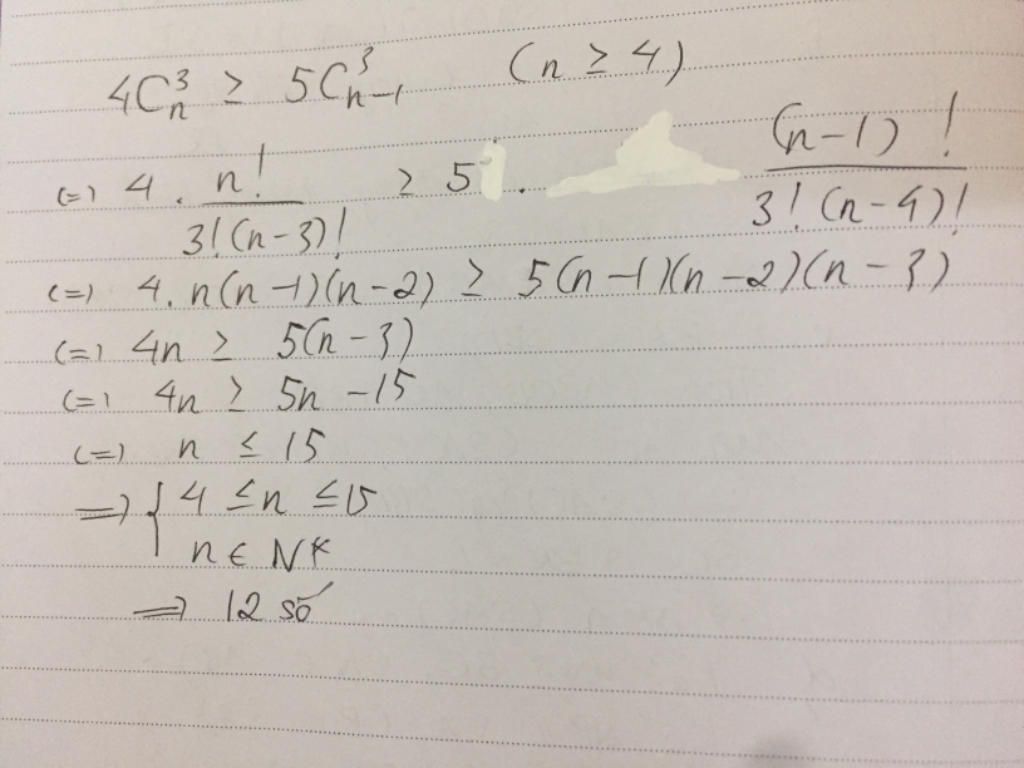 4C³ₙ ≥ 5C³ₙ₋₁ (n ≥ 4)
(=) 4 . n!/(3!(n-3)!) ≥ 5 . (n-1)!/(3!(n-4)!)
(=) 4. n(n-1)(n-2) ≥ 5(n-1)(n-2)(n-3)
(=) 4n ≥ 5(n-3)
(=) 4n ≥ 5n -15
(=) n ≤ 15
=> { 4 ≤ n ≤ 15
n ∈ N*
=> 12 số